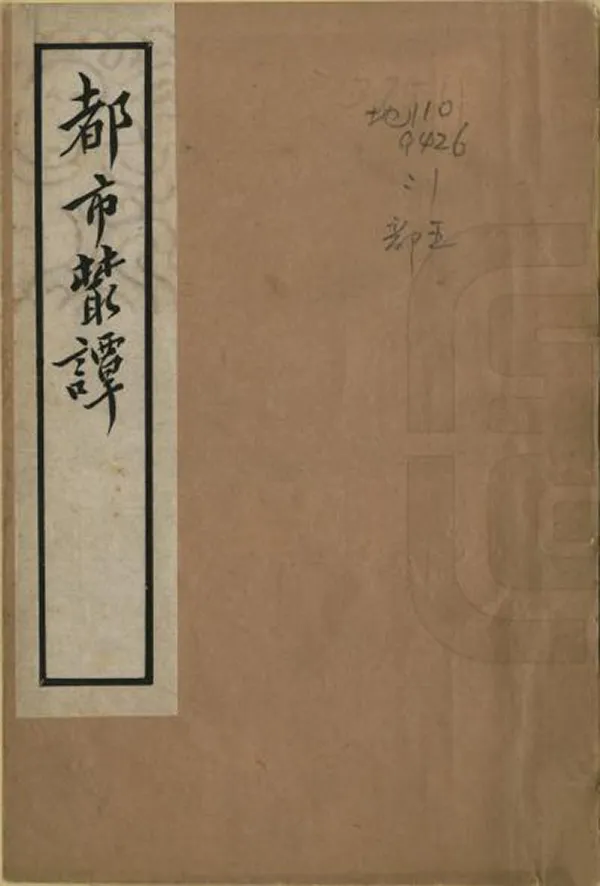 都市叢譚
地110
9426
:1
部五